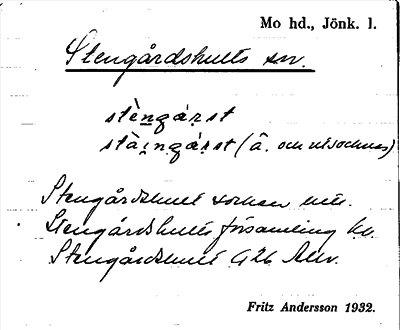 Mo hd., Jönk. l.
Stengårdshults sn.
stèngá̀rst
stài̯ngá̀rst (â. och utsocknes)
Stengårdshult socken
Stengårdshults församling
Stengårdshult
Fritz Andersson 1932.